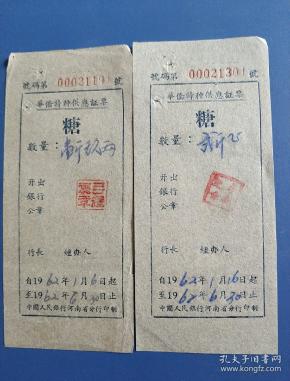 號碼第 00021101 號
華僑特种供應証票
糖
数量：
开出
銀行
公章
行长 經办人
自1962年1月6日起
至1962年6月30日止
中國人民銀行河南省分行印制
號碼第 00021301 號
華僑特种供應証票
糖
数量：
开出
銀行
公章
行长 經办人
自1962年1月16日起
至1962年6月30日止
中國人民銀行河南省分行印制
孔夫子旧书网